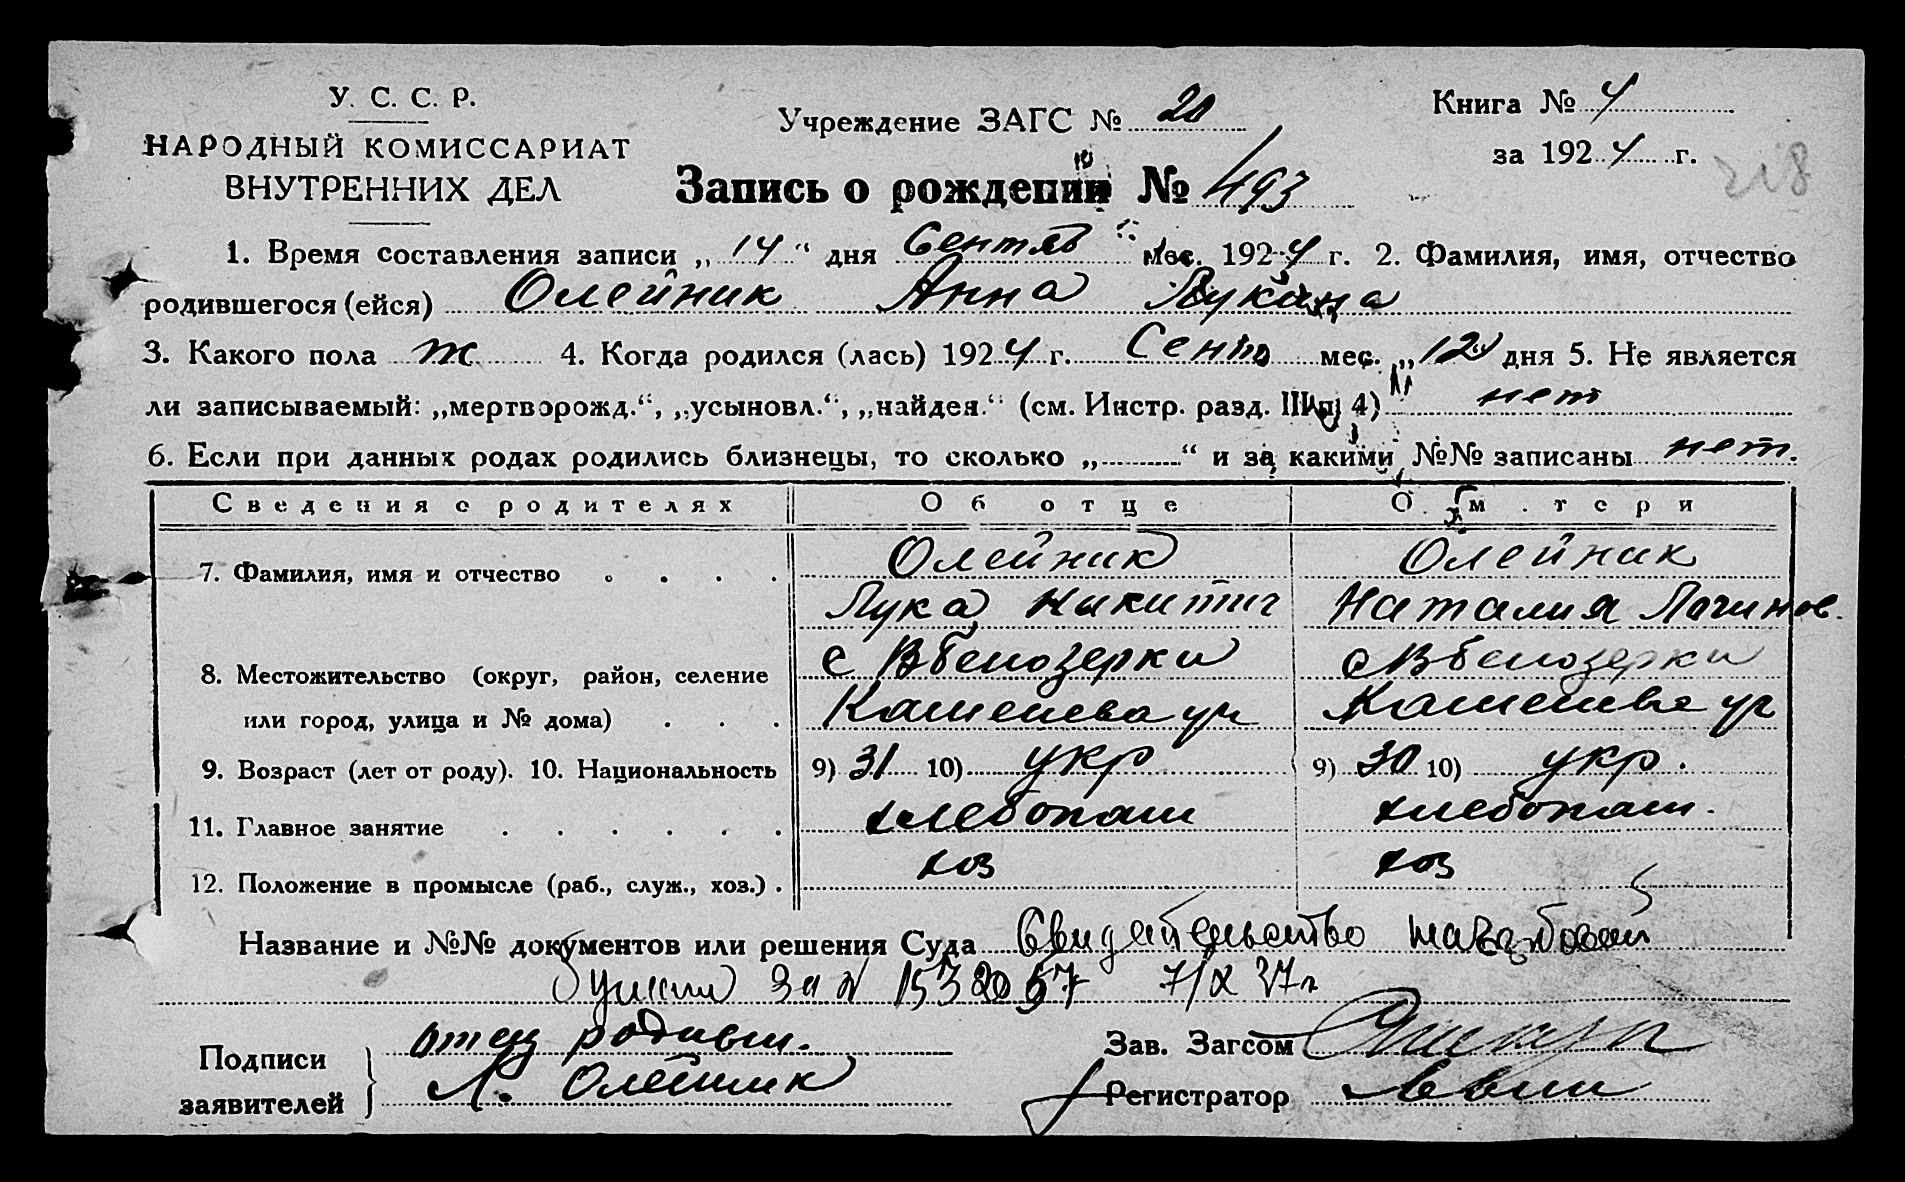 У. С. С. Р.
НАРОДНЫЙ КОМИССАРИАТ
ВНУТРЕННИХ ДЕЛ
Учреждение ЗАГС № 20
Книга № 4
за 1924 г.
218
Запись о рождении № 493
1. Время составления записи „14“ дня Сентяб мес. 1924 г. 2. Фамилия, имя, отчество
родившегося (ейся) Олейник Анна Лукина
3. Какого пола ж 4. Когда родился (лась) 1924 г. Сентя мес. „12“ дня 5. Не является
ли записываемый: „мертворожд.“, „усыновл.“, „найден.“ (см. Инстр. разд. III п. 4) нет
6. Если при данных родах родились близнецы, то сколько „ “ и за какими №№ записаны нет.
Сведения о родителях Об отце О м.тери
7. Фамилия, имя и отчество Олейник Олейник
Лука Никитич Наталия Логинов.
8. Местожительство (округ, район, селение с Вбелозерки с Вбелозерки
или город, улица и № дома)
9. Возраст (лет от роду). 10. Национальность 9) 31 10) укр 9) 30 10) укр.
11. Главное занятие хлебопаш хлебопаш.
12. Положение в промысле (раб., служ., хоз.) хоз хоз
Название и №№ документов или решения Суда Свидетельство
за № 7/X 37г
Подписи заявителей отец родивш.
Л. Олейник
Зав. Загсом
Регистратор